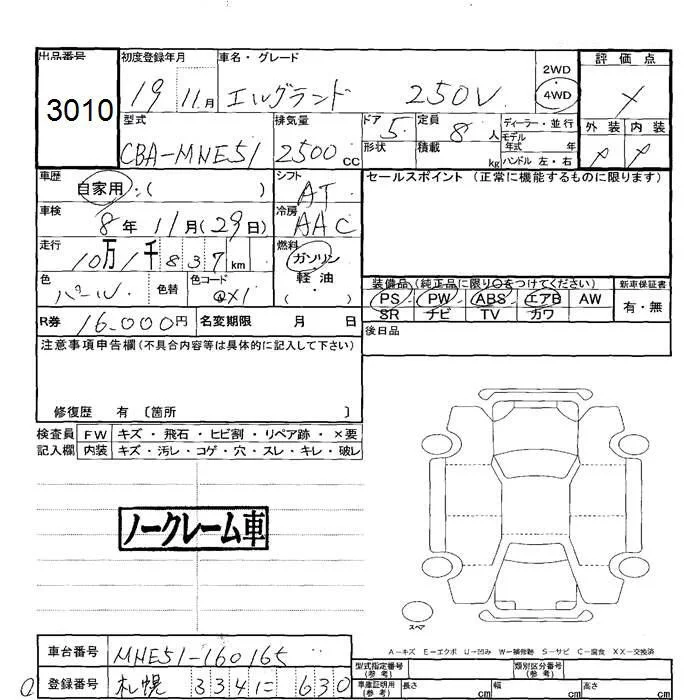 出品番号 初度登録年月 車名・グレード 2WD 評価点
3010 19 11月 エルグランド 250V 4WD
型式 排気量 ドア 定員 ディーラー・並行 外装 内装
CBA-MNE51 2500cc 5 8人 モデル年式 年
形状 積載 kg ハンドル 左・右
車歴 自家用:( ) シフト AT セールスポイント (正常に機能するものに限ります)
車検 8年 11月(29日) 冷房 AAC
走行 10万1千837km 燃料 ガソリン
軽油
・( )
色 パール 色替 色コード QX1
装備品(純正品に限り○をつけてください) 新車保証書
PS PW ABS エアB AW 有・無
SR ナビ TV カワ
R券 16.000円 名変期限 月 日 後日品
注意事項申告欄(不具合内容等は具体的に記入して下さい)
修復歴 有 〔箇所 〕
検査員 FW キズ・飛石・ヒビ割・リペア跡・×要
記入欄 内装 キズ・汚レ・コゲ・穴・スレ・キレ・破レ
ノークレーム車
スペア
A-キズ E-エクボ U-凹み W-補修跡 S-サビ C-腐食 XX-交換済
車台番号 MNE51-160165 型式指定番号(参考) 類別区分番号(参考)
登録番号 札幌 334 に 630 車庫証明用(参考) 長さ cm 幅 cm 高さ cm